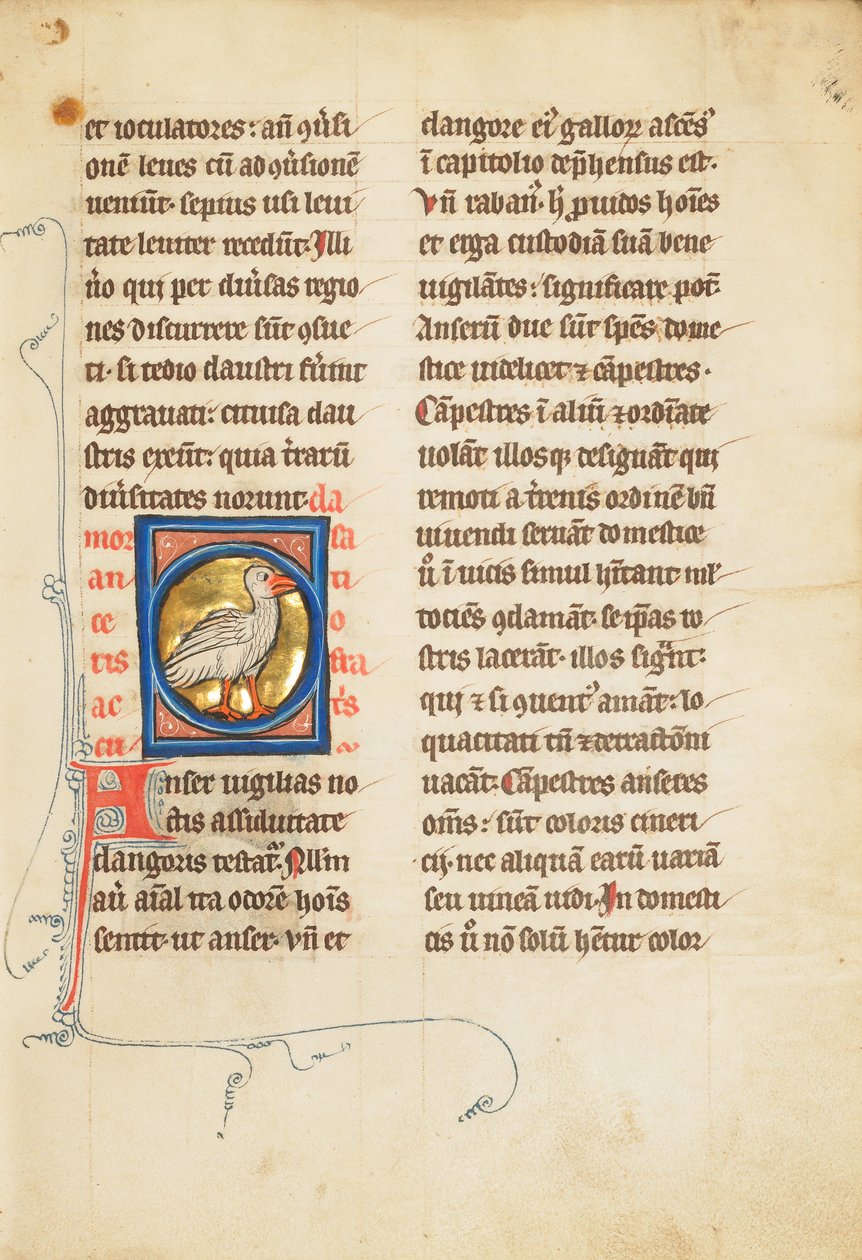 et ioculatores: an̄ ꝯu̓si
onē leues cū ad ꝯu̓sionē
ueniūt. sepius usi leui
tate leuiter recedūt. Illi
u̓o qui per diu̓sas regio
nes discurrere sūt ꝯsue
ti. si tedio claustri fu̓int
aggrauati: cituisa clau
stris exeūt: quia t̓rarū
diu̓sitates norunt. da
mor sa
an ti
ce o
ris fra
ac t̓s
cu
Anser uigilias no
ctis assiduitate
clangoris testat᷑. Nllm
au̓ aīal ita odorē hoīs
sentit. ut anser. vn̄ et
clangore ei᷒ galloꝝ ascēs᷒
ī capitolio dep̄hensus est.
Vn̄ raban᷒. h̄ ꝓuidos hoīes
et erga custodiā suā bene
uigilātes: significare pot̄.
Anserū due sūt spēs dome
stice uidelicet ⁊ cāpestres.
Cāpestres ī altū ⁊ ordīate
uolāt illosqꝫ designāt qui
remoti a t̓renis ordinē bn̄
uiuendi seruāt domestice
ů ī uicis simul hītant ml̓
tociēs ꝯclamāt. se ip̄as ro
stris lacerāt. illos sigͣnt:
qui ⁊ si ꝯuent᷒ amāt: lo
quacitati tn̄ ⁊ detractōni
uacāt. Cāpestres anseres
om̄s: sūt coloris cineri
cij. nec aliquā earū uariā
seu uineā uidi. In domesti
cis ů nō solū hētur color